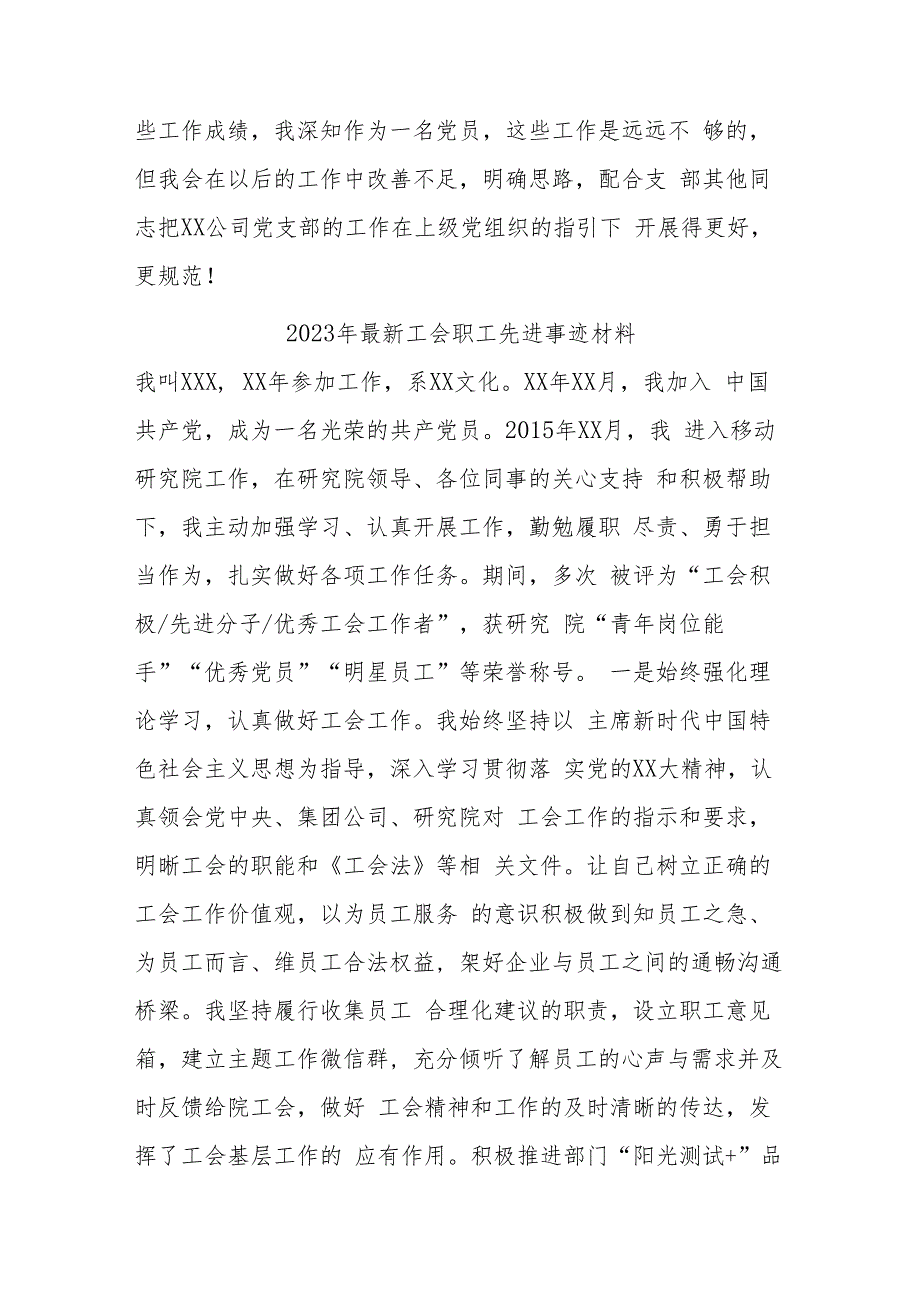 些工作成绩，我深知作为一名党员，这些工作是远远不 够的，
但我会在以后的工作中改善不足，明确思路，配合支 部其他同
志把XX公司党支部的工作在上级党组织的指引下 开展得更好，
更规范！
2023年最新工会职工先进事迹材料
我叫XXX, XX年参加工作，系XX文化。XX年XX月，我加入 中国
共产党，成为一名光荣的共产党员。2015年XX月，我 进入移动
研究院工作，在研究院领导、各位同事的关心支持 和积极帮助
下，我主动加强学习、认真开展工作，勤勉履职 尽责、勇于担
当作为，扎实做好各项工作任务。期间，多次 被评为“工会积
极/先进分子/优秀工会工作者”，获研究 院“青年岗位能
手”“优秀党员”“明星员工”等荣誉称号。 一是始终强化理
论学习，认真做好工会工作。我始终坚持以 主席新时代中国特
色社会主义思想为指导，深入学习贯彻落 实党的XX大精神，认
真领会党中央、集团公司、研究院对 工会工作的指示和要求，
明晰工会的职能和《工会法》等相 关文件。让自己树立正确的
工会工作价值观，以为员工服务 的意识积极做到知员工之急、
为员工而言、维员工合法权益, 架好企业与员工之间的通畅沟通
桥梁。我坚持履行收集员工 合理化建议的职责，设立职工意见
箱，建立主题工作微信群, 充分倾听了解员工的心声与需求并及
时反馈给院工会，做好 工会精神和工作的及时清晰的传达，发
挥了工会基层工作的 应有作用。积极推进部门“阳光测试+”品